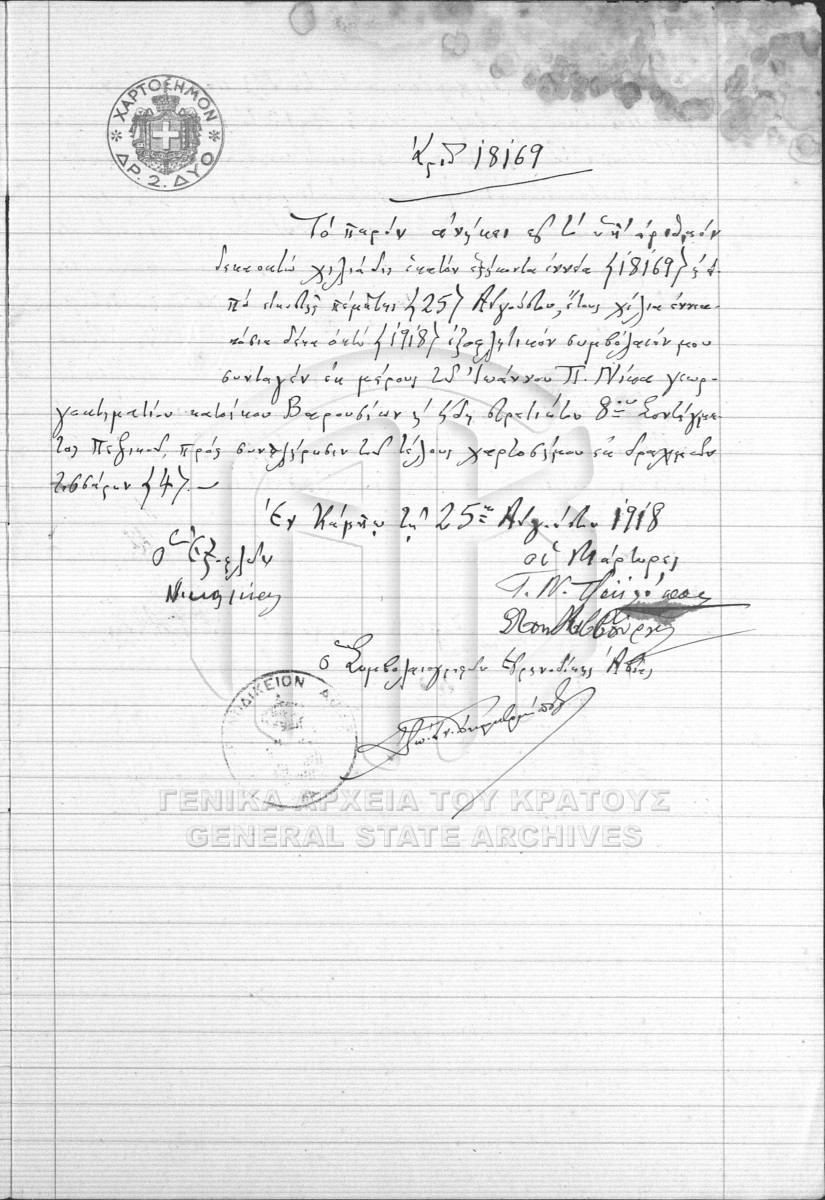 ΧΑΡΤΟΣΗΜΟΝ
ΔΡ. 2. ΔΥΟ
Ἀριθ 18169
Τό παρόν ἀνήκει εἰς τό ὑπ' ἀριθμόν
δεκαοκτώ χιλιάδες ἑκατόν ἑξήκοντα ἐννέα (18169) ἀ-
πό εἰκοστῆς πέμπτης (25) Αὐγούστου, ἔτους χίλια ἐννια-
κόσια δέκα ὀκτώ (1918) ἐξοφλητικόν συμβόλαιόν μου
συνταγέν ἐκ μέρους τοῦ Ἰωάννου Π. Νίκα γεωρ-
γοκτηματίου κατοίκου Βαρουσίων ἤ ἤδη στρατιώτου 8ου Συντάγμα-
τος Πεζικοῦ, πρός συμπλήρωσιν τοῦ τέλους χαρτοσήμου ἐκ δραχμῶν
τεσσάρων (4).
Ἐν Κάμπῳ τῇ 25ῃ Αὐγούστου 1918
Ὁ Ἐξοφλῶν
οἱ Μάρτυρες
ὁ Συμβολαιογραφῶν Εἰρηνοδίκης Ἀβίας
ΔΙΚΕΙΟΝ
ΓΕΝΙΚΑ ΑΡΧΕΙΑ ΤΟΥ ΚΡΑΤΟΥΣ
GENERAL STATE ARCHIVES